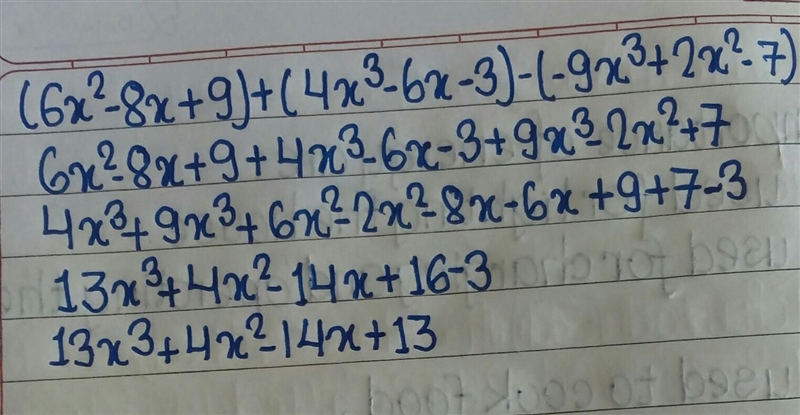 (6x²-8x+9)+(4x³-6x-3)-(-9x³+2x²-7)
6x²-8x+9+4x³-6x-3+9x³-2x²+7
4x³+9x³+6x²-2x²-8x-6x+9+7-3
13x³+4x²-14x+16-3
13x³+4x²-14x+13